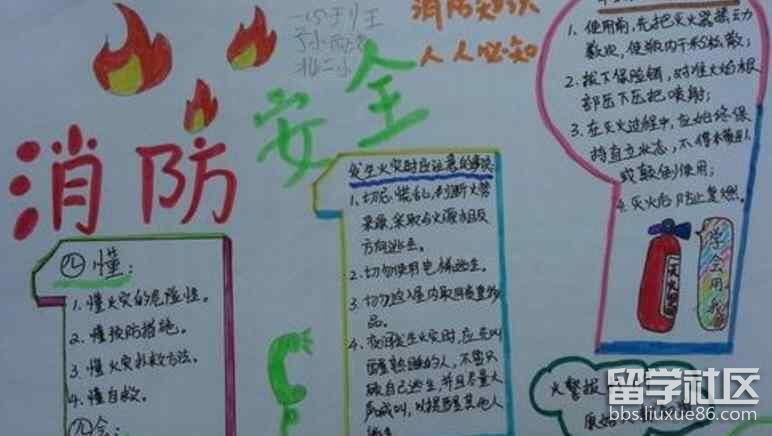 消防知识
人人必知
消防
安全
四懂：
1. 懂火灾的危险性。
2. 懂预防措施。
3. 懂火灾扑救方法。
4. 懂自救。
四会：
发生火灾时应注意的事项
1. 切忌慌乱，判断火势
来源，采取与火源相反
方向逃生。
2. 切勿使用电梯逃生。
3. 切勿返入屋内取回贵重物
品。
4. 夜间发生火灾时，应先叫
醒熟睡的人，不要只
顾自己逃生，并且尽量大
声喊叫，以提醒其他人
逃生。
1. 使用前，先把灭火器摇动
数次，使瓶内干粉松散；
2. 拔下保险销，对准火焰根
部压下压把喷射；
3. 在灭火过程中，应始终保
持直立状态，不得横卧
或颠倒使用；
4. 灭火后防止复燃。
灭火器
学会用我
火警报
留学社区
bbs.liuxue86.com